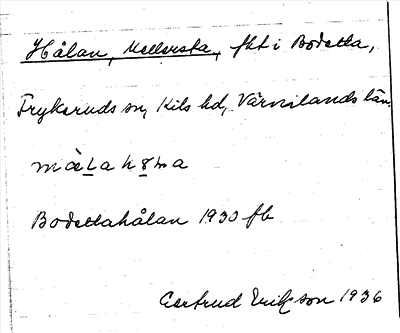 Hålan, Mellersta, fkt i Bodetta,
Frykeruds sn, Kils hd, Värmlands län
Bodettahålan 1930 fb
Gertrud Ericsson 1936